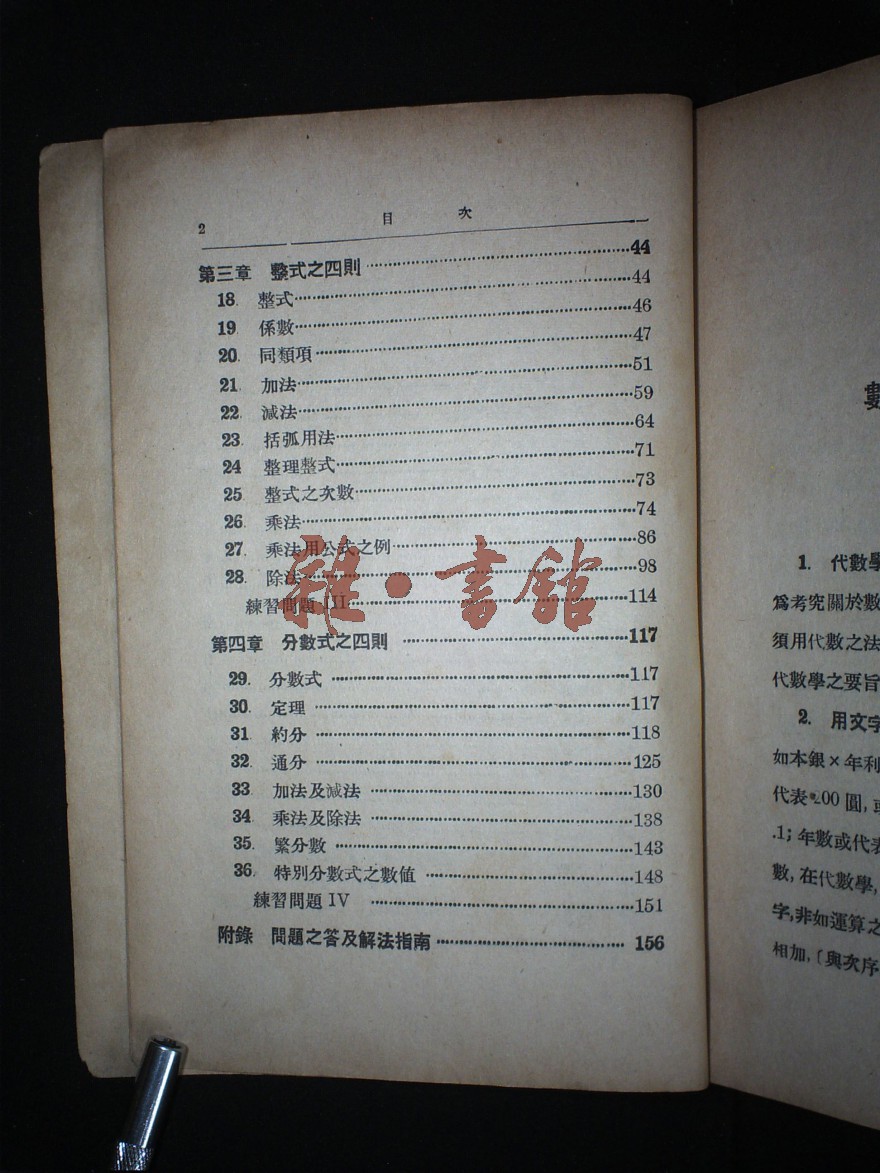 2 目次
第三章 整式之四則 44
18. 整式 44
19. 係數 46
20. 同類項 47
21. 加法 51
22. 減法 59
23. 括弧用法 64
24 整理整式 71
25 整式之次數 73
26. 乘法 74
27. 乘法用公式之例 86
28. 除法 98
練習問題 III 114
第四章 分數式之四則 117
29. 分數式 117
30. 定理 117
31. 約分 118
32. 通分 125
33. 加法及減法 130
34. 乘法及除法 138
35. 繁分數 143
36. 特別分數式之數值 148
練習問題 IV 151
附錄 問題之答及解法指南 156
雜·書館
1. 代數學
爲考究關於數
須用代數之法
代數學之要旨
2. 用文字
如本銀×年利
代表 200 圓,
.1; 年數或代表
數, 在代數學,
字, 非如運算之
相加, 〔與次序